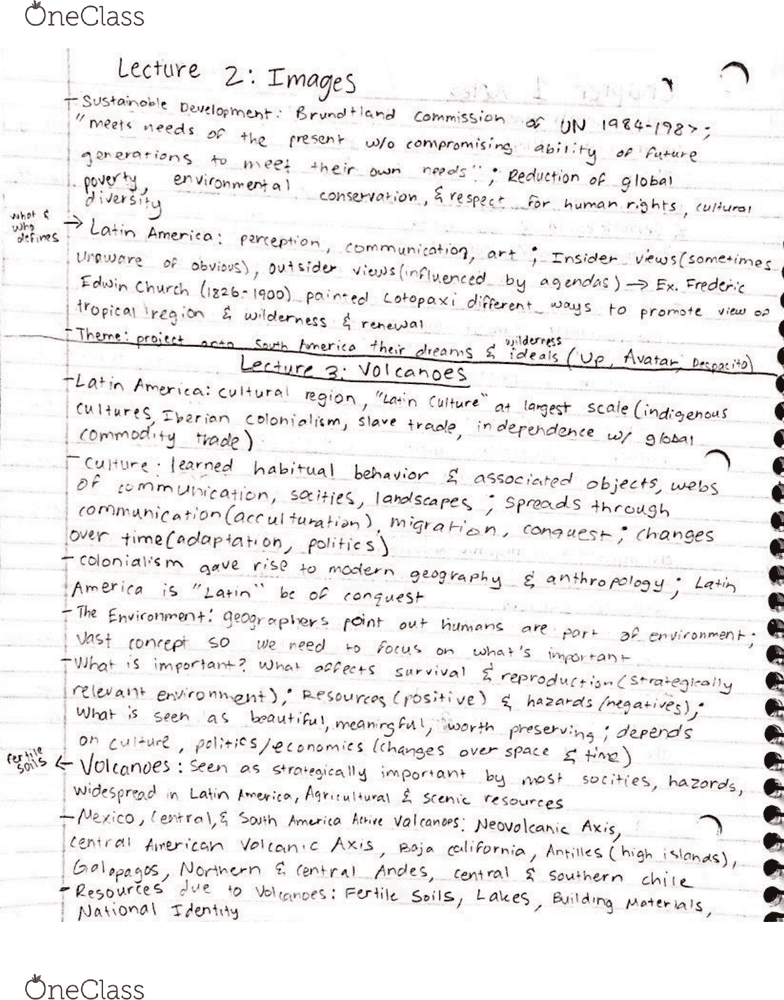 OneClass
Lecture 2: Images
- Sustainable Development: Brundtland Commission of UN 1984-1987;
"meets needs of the present w/o compromising ability of future
generations to meet their own needs"; Reduction of global
poverty, environmental conservation, & respect for human rights, cultural
diversity
what & who defines
→ Latin America: perception, communication, art; Insider views (sometimes
unaware of obvious), outsider views (influenced by agendas) → Ex. Frederic
Edwin Church (1826-1900) painted Cotopaxi different ways to promote view of
tropical region & wilderness & renewal
- Theme: project onto South America their dreams & wilderness ideals (Up, Avatar, Despacito)
Lecture 3: Volcanoes
- Latin America: cultural region, "Latin Culture" at largest scale (indigenous
cultures, Iberian colonialism, slave trade, independence w/ global
commodity trade)
- Culture: learned habitual behavior & associated objects, webs
of communication, socities, landscapes; spreads through
communication (acculturation), migration, conquest; changes
over time (adaptation, politics)
- colonialism gave rise to modern geography & anthropology; Latin
America is "Latin" bc of conquest
- The Environment: geographers point out humans are part of environment;
vast concept so we need to focus on what's important
- What is important? What affects survival & reproduction (strategically
relevant environment); Resources (positive) & hazards (negatives);
What is seen as beautiful, meaningful, worth preserving; depends
on culture, politics/economics (changes over space & time)
fertile soils
← Volcanoes: seen as strategically important by most socities, hazards,
widespread in Latin America, Agricultural & scenic resources
- Mexico, Central, & South America Active Volcanoes: Neovolcanic Axis,
central American Volcanic Axis, Baja california, Antilles (high islands),
Galapagos, Northern & central Andes, central & southern chile
- Resources due to Volcanoes: Fertile Soils, Lakes, Building Materials,
National Identity
OneClass